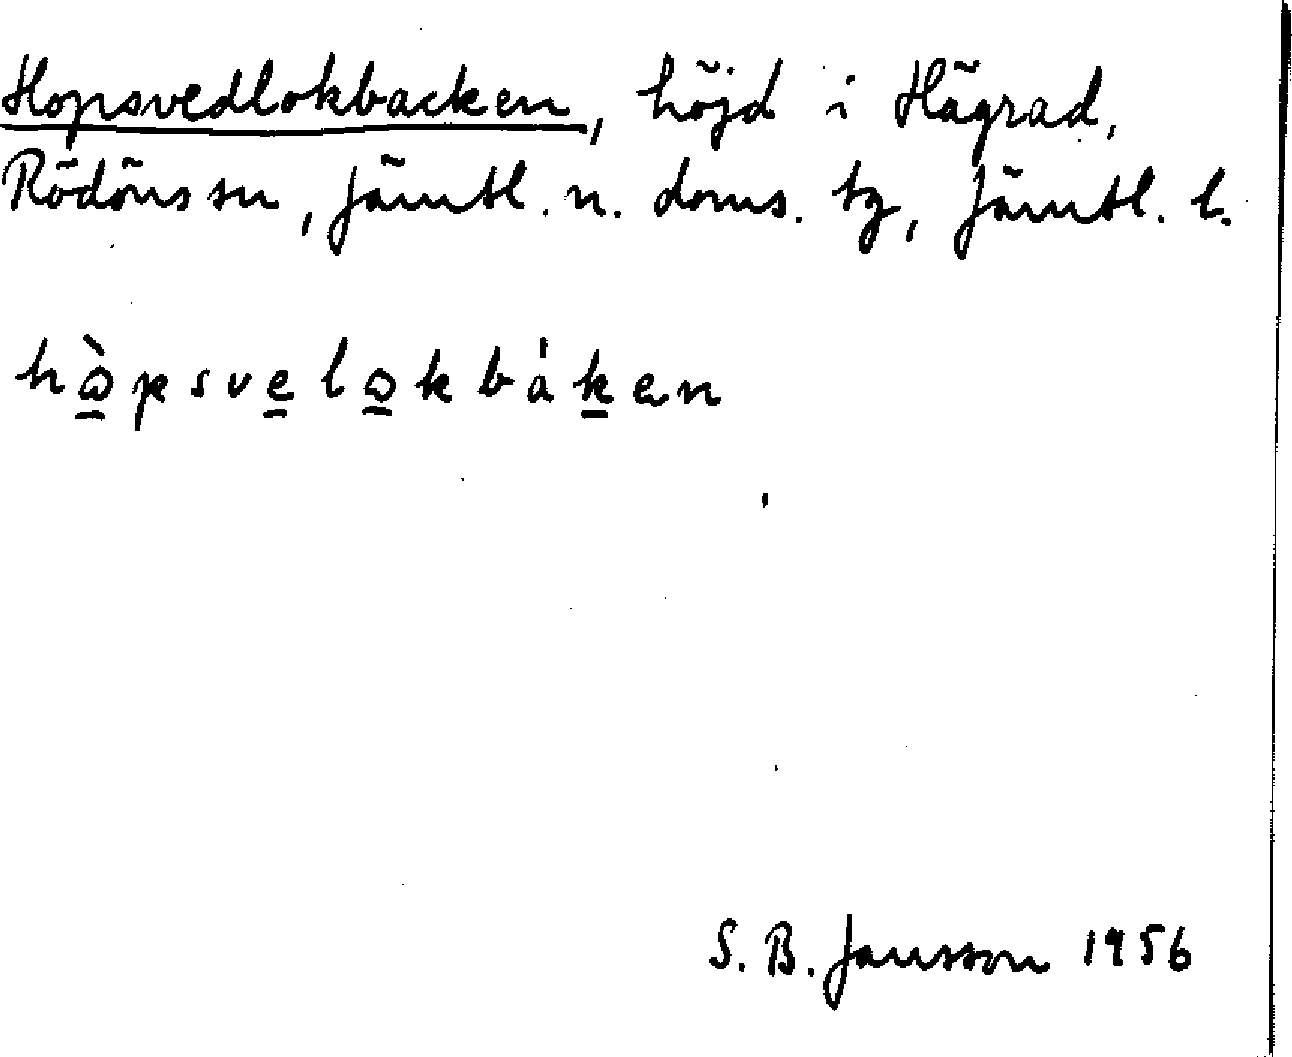 Hopsvedlokbacken, höjd i Hägrad,
Rödöns sn, Jämtl. n. doms. tg, Jämtl. l.
hò̱psve̱lo̱kbáḵen
S. B. Jansson 1956